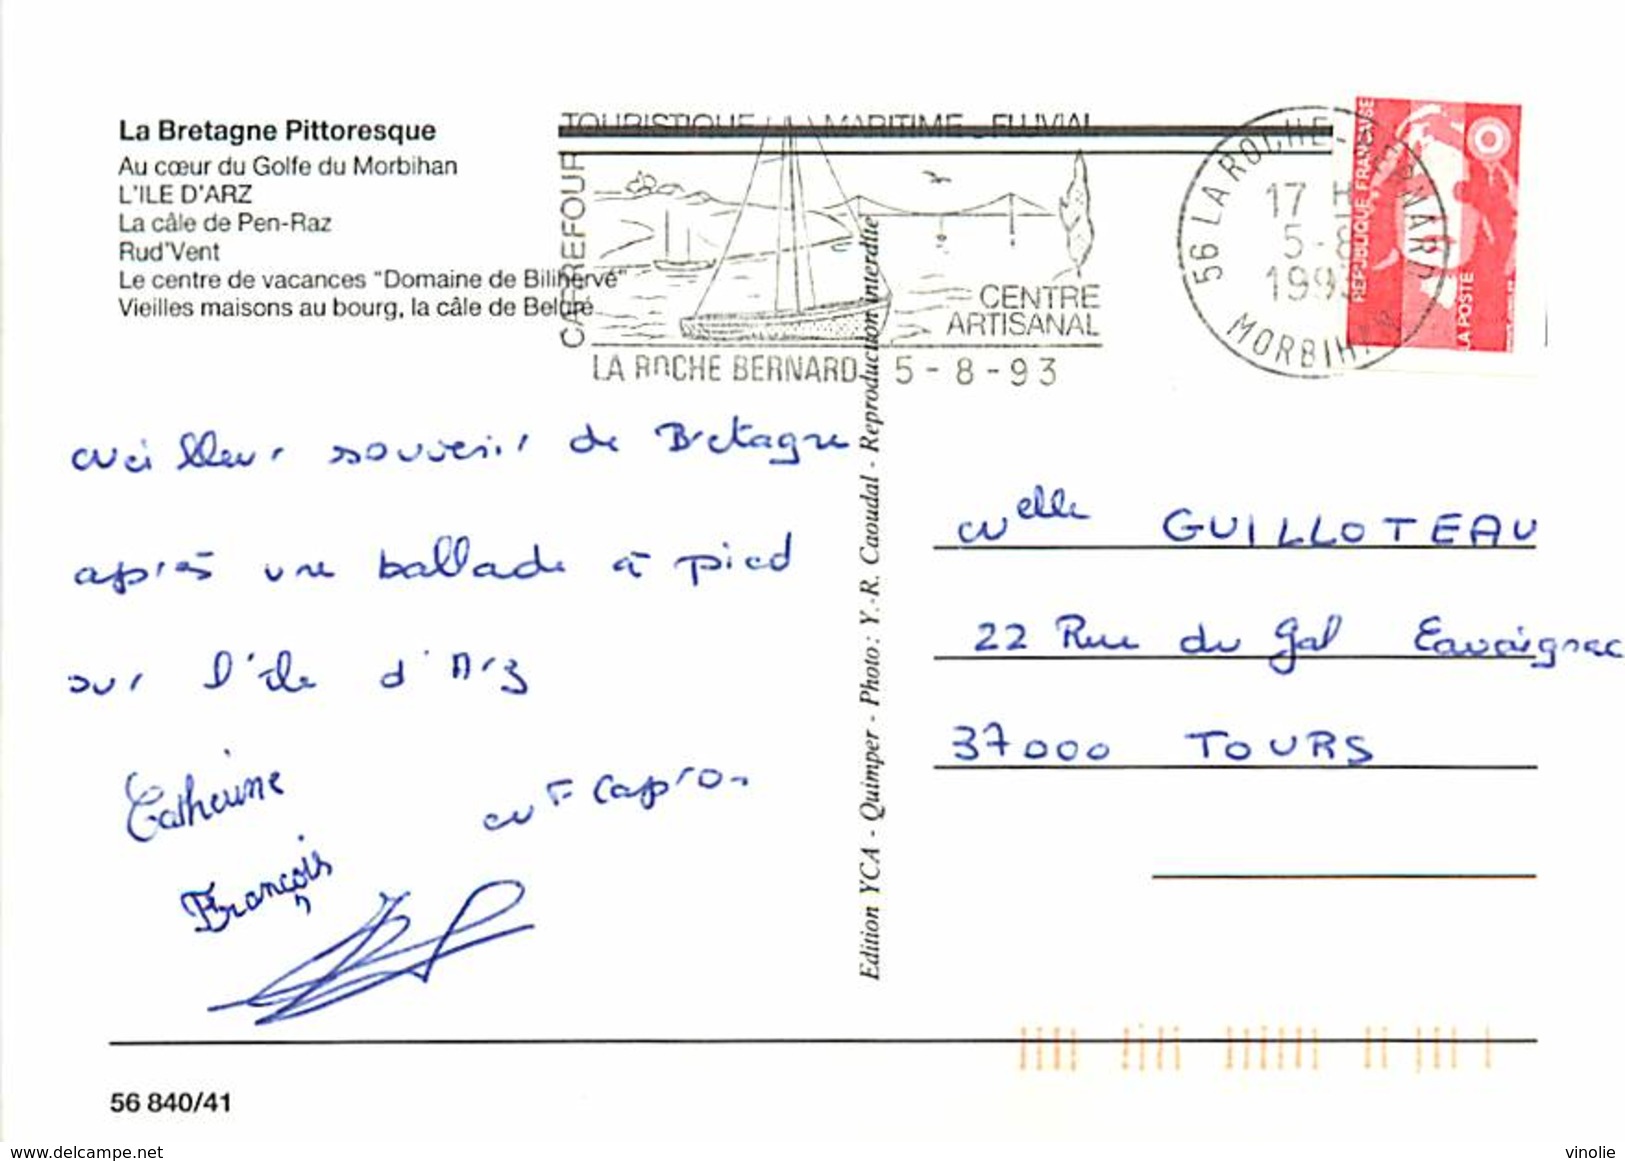 La Bretagne Pittoresque
Au cœur du Golfe du Morbihan
L'ILE D'ARZ
La câle de Pen-Raz
Rud'Vent
Le centre de vacances "Domaine de Bilihervé"
Vieilles maisons au bourg, la câle de Beluré
TOURISTIQUE MARITIME FLUVIAL
CARREFOUR
CENTRE
ARTISANAL
LA ROCHE BERNARD 5-8-93
56 LA ROCHE-BERNARD
17 H
5-8
1993
MORBIHAN
REPUBLIQUE FRANÇAISE
LA POSTE
Meilleur souvenir de Bretagne
après une ballade à pied
sur l'île d'Arz
Catherine
François
M F Capron
Edition YCA - Quimper - Photo : Y.-R. Caoudal - Reproduction interdite
Melle GUILLOTEAU
22 Rue du Gal Cavaignac
37000 TOURS
56 840/41
delcampe.net
vinolie